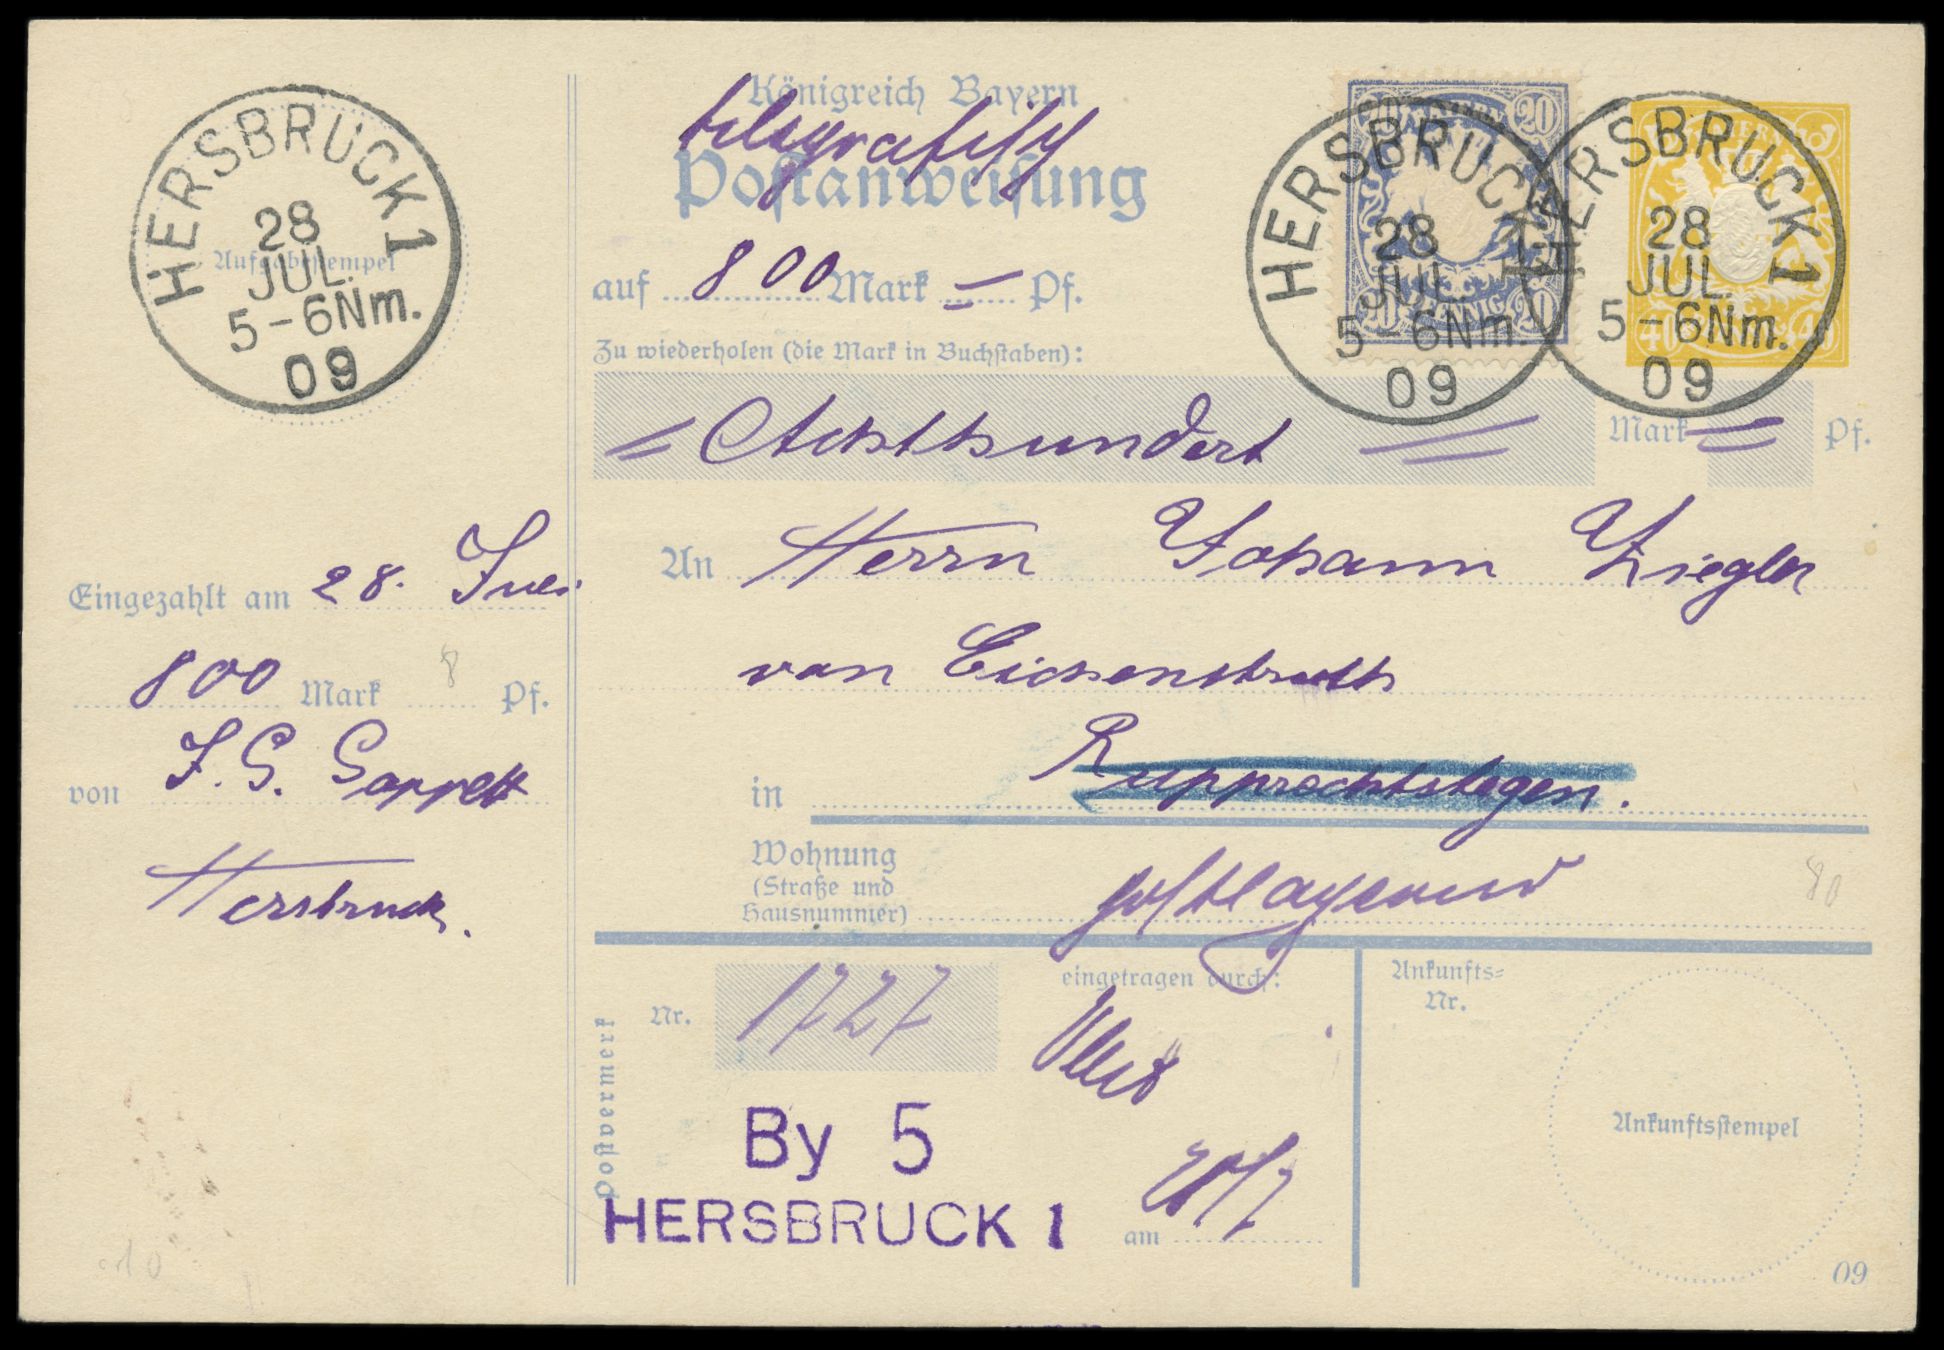 HERSBRUCK 1
28
JUL.
5-6Nm.
09
Aufgabestempel
Eingezahlt am 28. Juli
800 Mark 8 Pf.
von J. G.
Hersbruck.
Königreich Bayern
telegrafisch
Postanweisung
auf 800 Mark — Pf.
Zu wiederholen (die Mark in Buchstaben):
= Achthundert = Mark = Pf.
BAYERN
20 20
PFENNIG
20 20
HERSBRUCK 1
28
JUL.
5-6Nm.
09
BAYERN
40 40
HERSBRUCK 1
28
JUL.
5-6Nm.
09
An Herrn Johann Ziegler
von Eichenstruth
in Rupprechtstegen.
Wohnung
(Straße und
Hausnummer) postlagernd
80
Postvermerk
Nr. 1727
By 5
HERSBRUCK 1
eingetragen durch:
am 28/7
Ankunfts=
Nr.
Ankunftsstempel
09